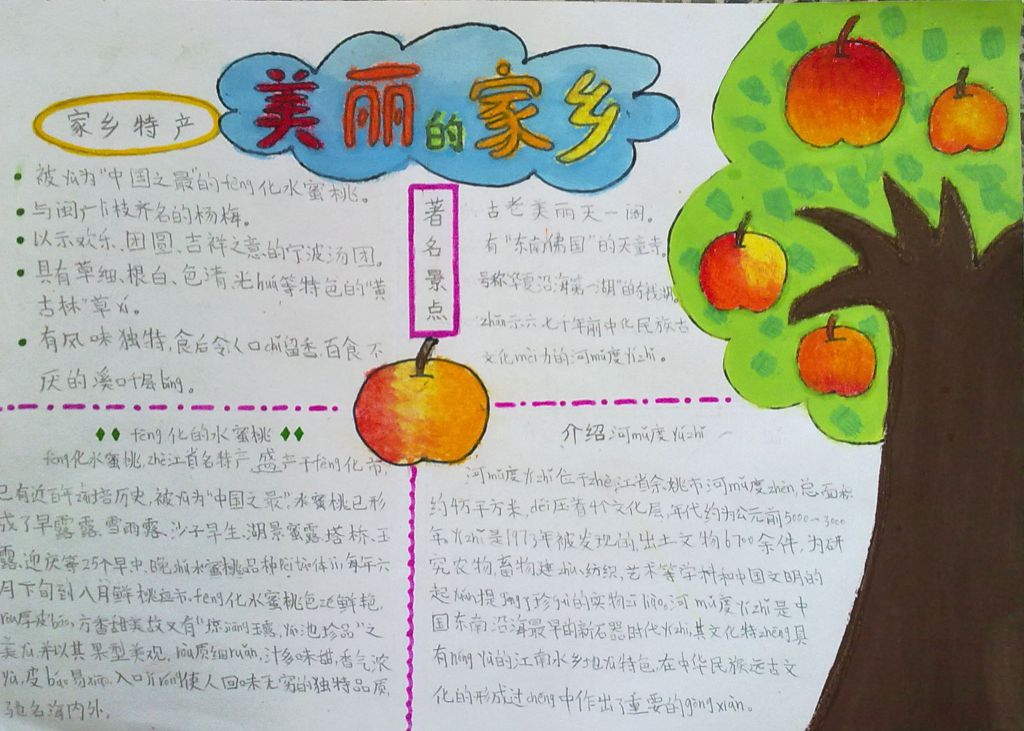 美丽的家乡
家乡特产
被yù为"中国之最"的fèng化水蜜桃。
与闽广lì枝齐名的杨梅。
以示欢乐、团圆、吉祥之意的宁波汤团。
具有草细、根白、色清、光huá等特色的"黄
古林"草xí。
有风味独特,食后令人口chǐ留香,百食不
厌的溪口千层bǐng。
著名景点
古老美丽天一阁。
有"东南佛国"的天童寺。
号称"华夏沿海第一湖"的
zhǎn示六七千年前中化民族古
文化mèi力的河mǔ度yízhǐ。
fèng化的水蜜桃
fèng化水蜜桃,zhè江省名特产,盛产于fèng化市,
已有近百年栽培历史,被yù为"中国之最",水蜜桃已形
成了早露露、雪雨露、沙子早生、湖景蜜露、塔桥、玉
露、迎庆等25个早中、晚shú水蜜桃品种 每年六
月下旬到八月鲜桃应市,fèng化水蜜桃色泽鲜艳,
ròu厚皮báo,芳香甜美故又有"琼jiāng玉露,yáo池珍品"之
美yù,并以其果型美观,ròu质细ruǎn,汁多味甜,香气浓
yù,皮báo易 入口 使人回味无穷的独特品质,
驰名海内外。
介绍河mǔ度yízhǐ
河mǔ度yízhǐ位于zhè江省余姚市河mǔ度zhèn,总面积
约4万平方米,dié压有4个文化层,年代约为公元前5000-3000
年,yízhǐ是1973年被发现的,出土文物6700余件,为研
究农物,畜物,建zhù,纺织,艺术等学科和中国文明的
起yuán提 了珍guì的实物zī liào。河mǔ度yízhǐ是中
国东南沿海最早的新石器时代yízhǐ,其文化特zhēng具
有nóng yù的江南水乡地yù特色,在中华民族远古文
化的形成过chéng中作出了重要的gòng xiàn。